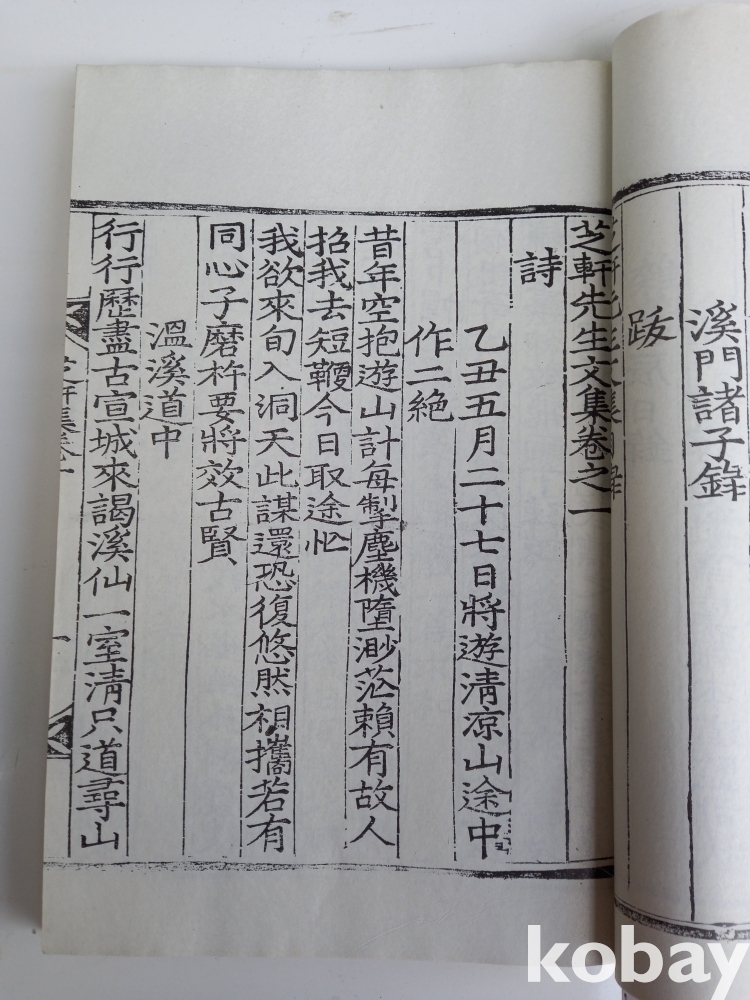 溪門諸子錄
跋
芝軒先生文集卷之一
詩
乙丑五月二十七日將遊淸凉山途中
作二絶
昔年空抱遊山計每掣塵機墮渺茫賴有故人
招我去短鞭今日取途忙
我欲來旬入洞天此謀還恐復悠然相攜若有
同心子磨杵要將效古賢
溫溪道中
行行歷盡古宣城來謁溪仙一室淸只道尋山
芝軒集卷一
一
kobay